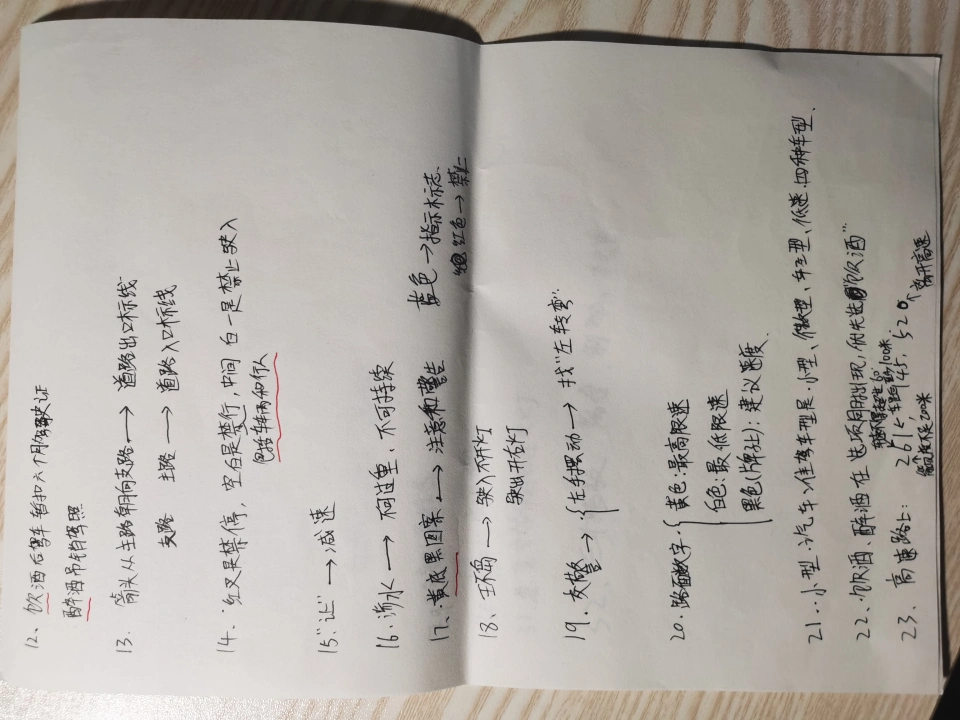 12、饮酒后驾车暂扣六个月驾驶证
醉酒吊销驾照
13. 箭头从主路朝向支路→道路出口标线
支路 主路→道路入口标线
14、红叉是禁停，空白是禁行，中间白一是禁止驶入
包括车辆和行人
15"让"→减速
16、渗水→不可过重、不可持续
17、黄底黑图案→注意和警告 蓝色→指示标志
红色→禁止
18、环岛→驶入不开灯
驶出开右灯
19、交警→{左手摆动→找"左转弯"
20、路面数字{黄色:最高限速
白色:最低限速
黑色(牌上):建议速度
21、小型汽车准驾车型是小型、微型、轻型、低速四种车型、
22、饮酒、醉酒在选项同时出现，优先选"饮酒"
能见度 车距100米
23、高速路上: 261、145、520
能见度200米 离开高速